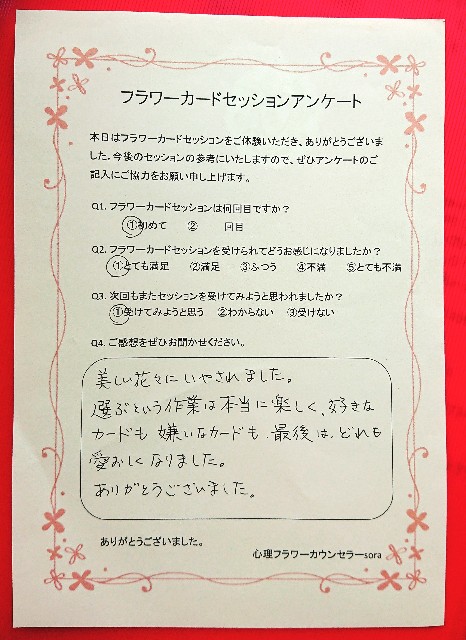 フラワーカードセッションアンケート
本日はフラワーカードセッションをご体験いただき、ありがとうございま
した。今後のセッションの参考にいたしますので、ぜひアンケートのご
記入にご協力をお願い申し上げます。
Q1. フラワーカードセッションは何回目ですか？
①初めて ② 回目
Q2. フラワーカードセッションを受けられてどうお感じになりましたか？
①とても満足 ②満足 ③ふつう ④不満 ⑤とても不満
Q3. 次回もまたセッションを受けてみようと思われましたか？
①受けてみようと思う ②わからない ③受けない
Q4. ご感想をぜひお聞かせください。
美しい花々にいやされました。
選ぶという作業は本当に楽しく、好きな
カードも嫌いなカードも、最後は、どれも
愛おしくなりました。
ありがとうございました。
ありがとうございました。
心理フラワーカウンセラーsora